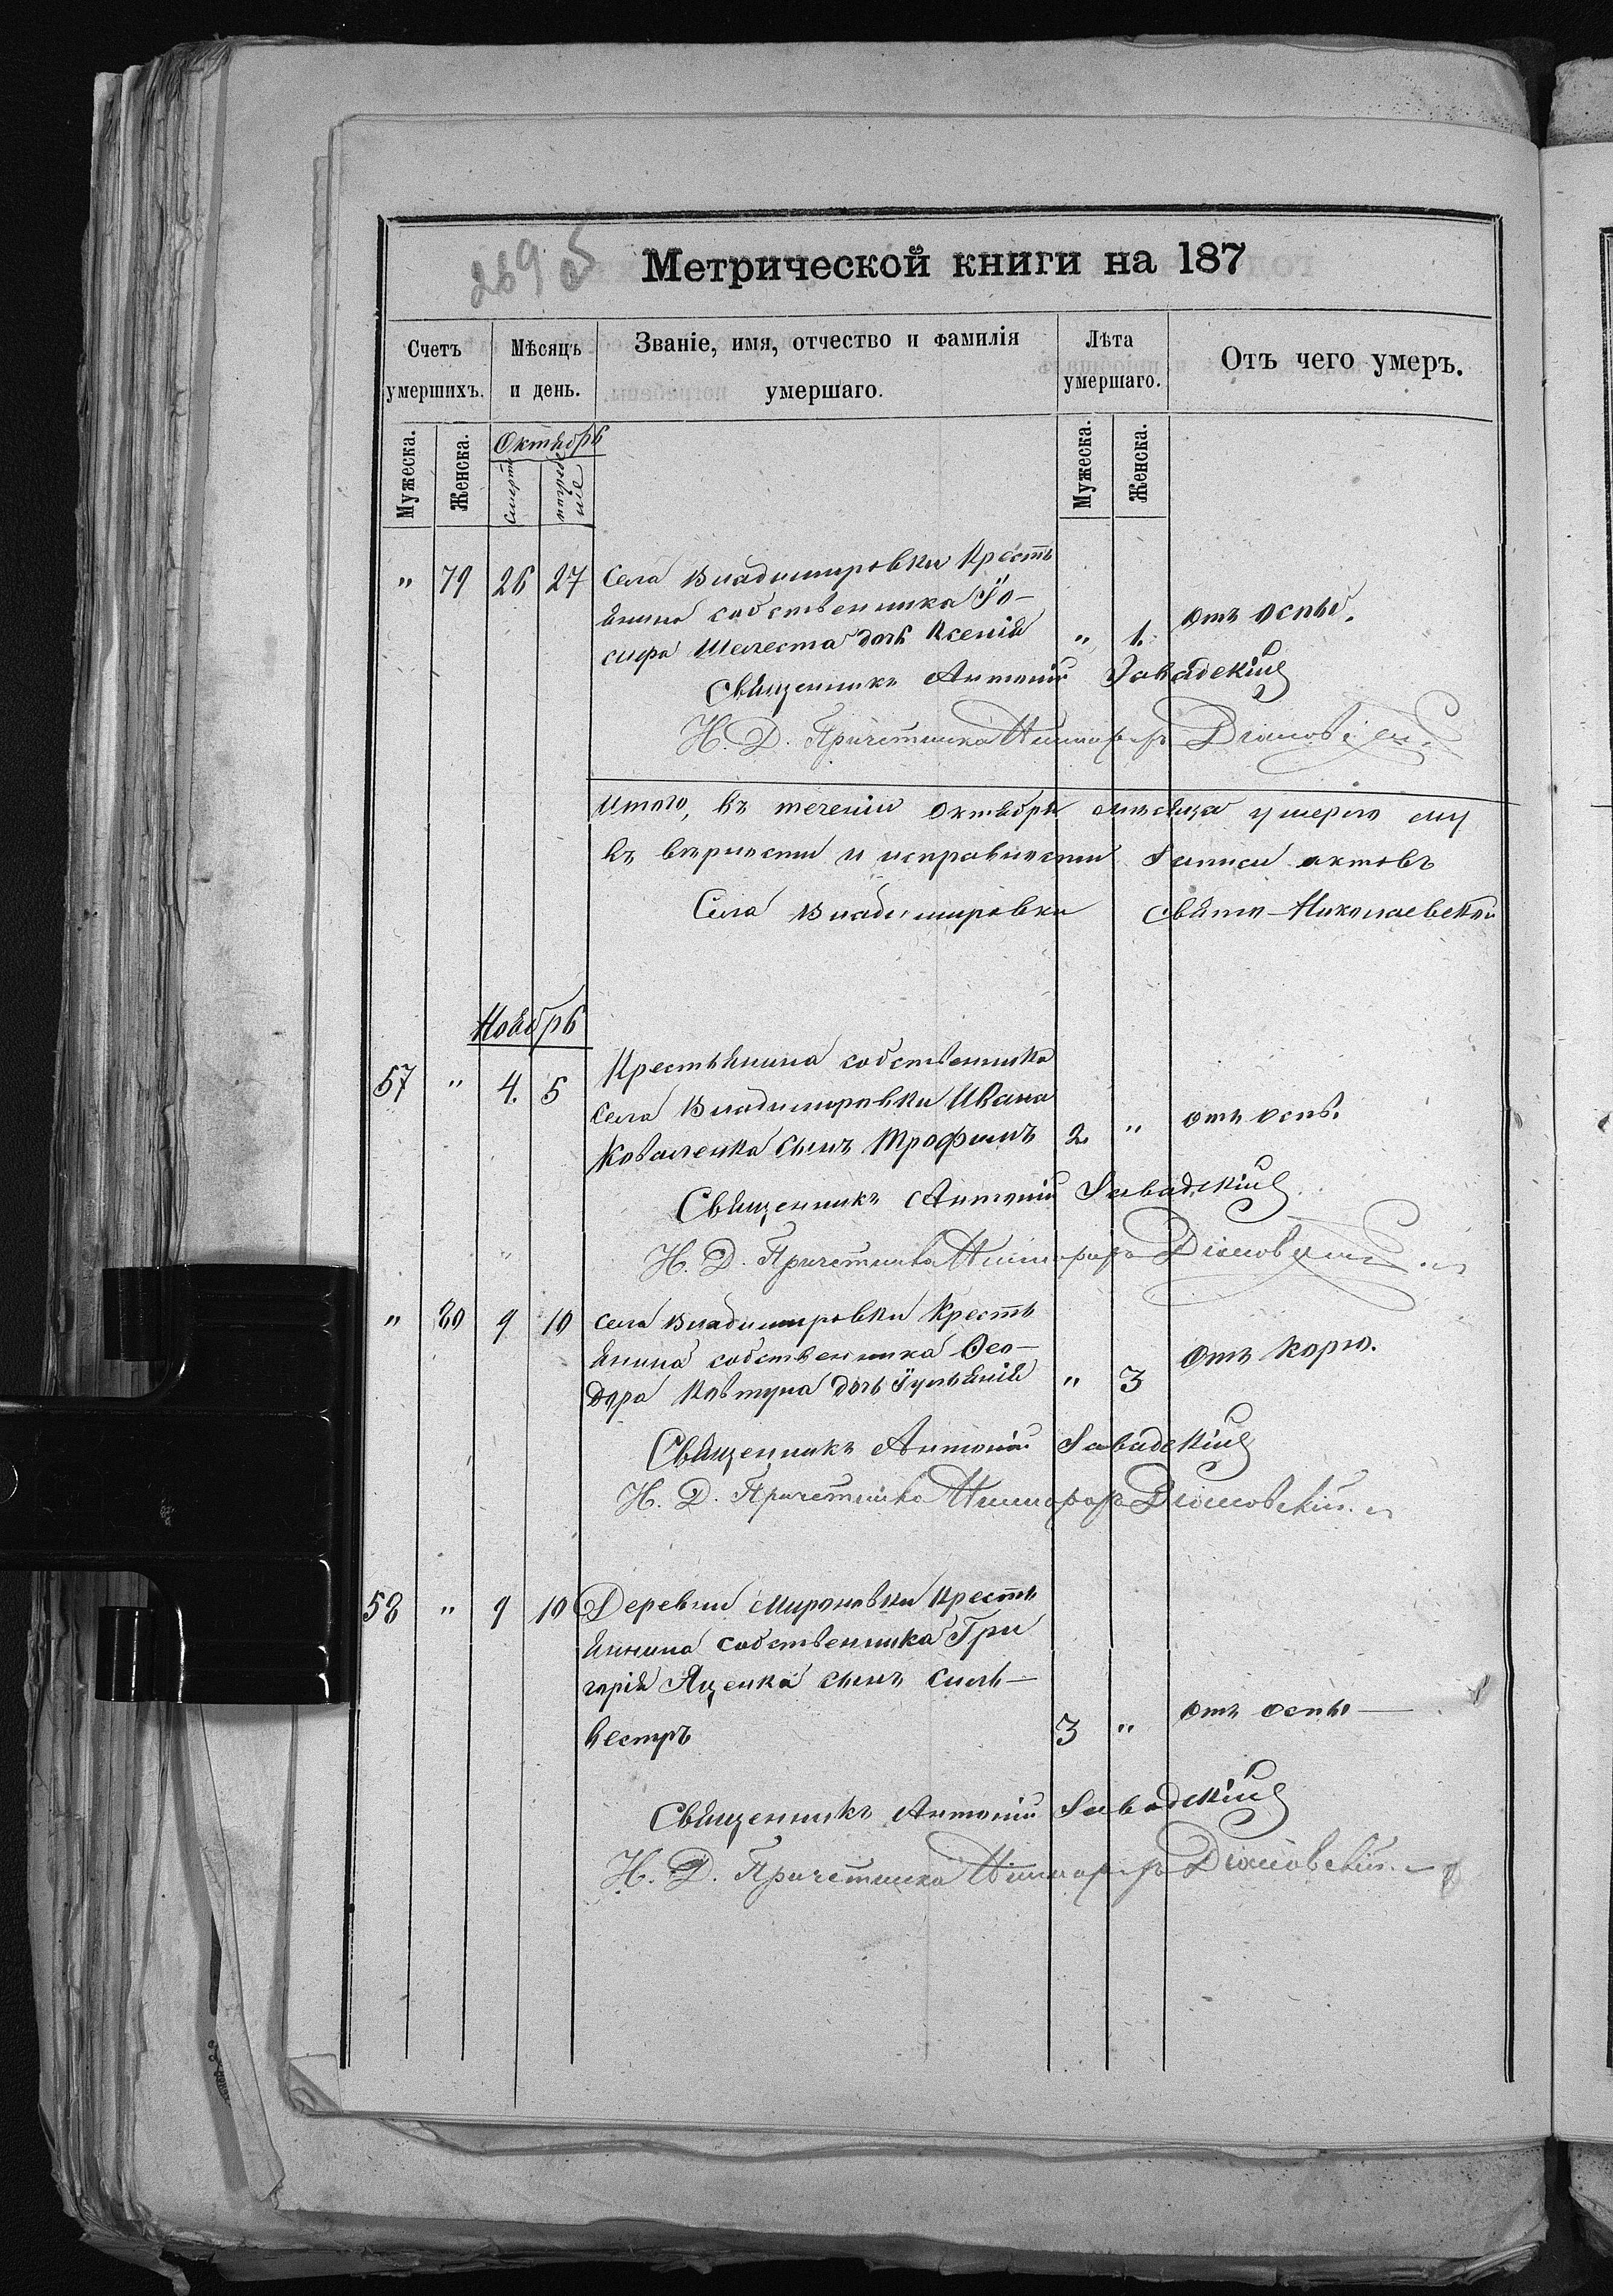 269 об
Метрической книги на 187
Счетъ умершихъ.
Мѣсяцъ и день.
Званіе, имя, отчество и фамилія умершаго.
Лѣта умершаго.
Отъ чего умеръ.
Мужеска.
Женска.
Октябрь
Мужеска.
Женска.
" 79 26 27 Села Владимировки Кресть
янина собственника Іо-
сифа Шелеста дочь Ксенія " 1. отъ оспы.
Священникъ Антоній Завадскій
Н. Д. Причетника
Итого, въ теченіи Октября мѣсяца умерло му
въ вѣрности и исправности записи актовъ
Села Владимировки Свято-Николаевской
Ноябрь
57 " 4. 5 Крестьянина собственника
села Владимировки Ивана
Коваленка сынъ Трофимъ 2. " отъ оспы.
Священникъ Антоній Завадскій
Н. Д. Причетника
" 80 9 10 села Владимировки Кресть
янина собственника Ѳео-
дора Ковтуна дочь Іуліанія " 3 отъ корю.
Священникъ Антоній Завадскій
Н. Д. Причетника
58 " 9 10 Деревни Мироновки Кресть
янина собственника Гри
горія Яценка сынъ Силь-
вестръ 3 " отъ оспы
Священникъ Антоній Завадскій
Н. Д. Причетника